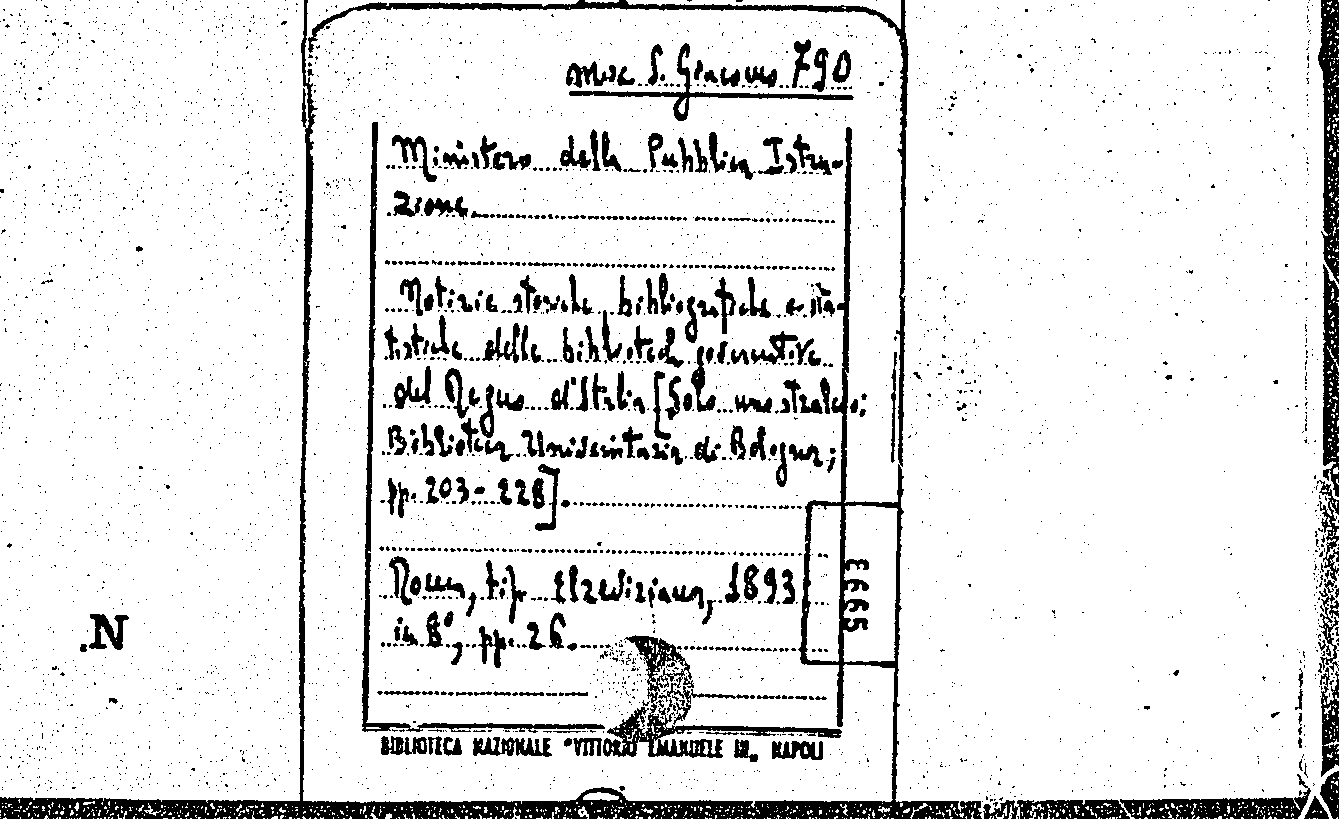 misc S. Giacomo 790
Ministero della Pubblica Istru-
zione.
Notizie storiche bibliografiche e sta-
tistiche delle biblioteche governative
del Regno d'Italia [Solo uno stralcio;
Biblioteca Universitaria di Bologna;
pp. 203-228].
Roma, tip. Elzeviriana, 1893
in 8°, pp. 26.
3665
BIBLIOTECA NAZIONALE "VITTORIO EMANUELE III„ NAPOLI
.N